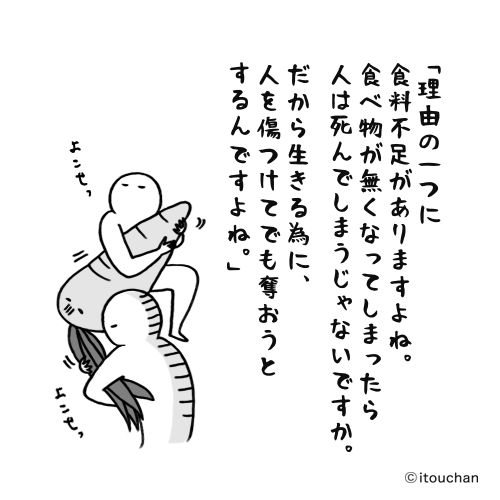 「理由の一つに
食料不足がありますよね。
食べ物が無くなってしまったら
人は死んでしまうじゃないですか。
だから生きる為に、
人を傷つけてでも奪おうと
するんですよね。」
よこせっ
よこせっ
©itouchan